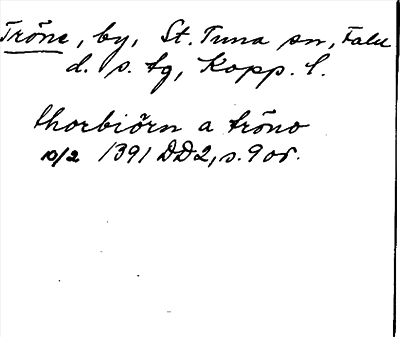 Tröne, by, St. Tuna sn, Falu
d. s. tg, Kopp. l.
thorbiörn a tröno
10/2 1391 DD2, s. 9 or.